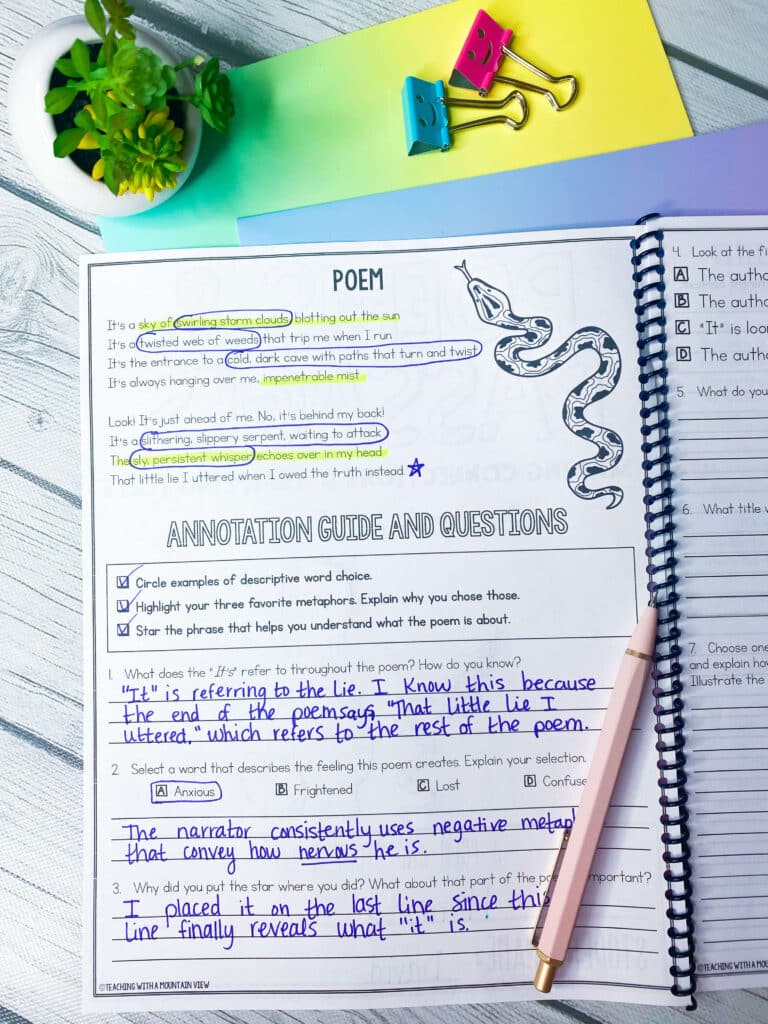 POEM
It's a sky of swirling storm clouds blotting out the sun
It's a twisted web of weeds that trip me when I run
It's the entrance to a cold, dark cave with paths that turn and twist
It's always hanging over me, impenetrable mist
Look! It's just ahead of me. No, it's behind my back!
It's a slithering, slippery serpent, waiting to attack
The sly, persistent whisper echoes over in my head
That little lie I uttered when I owed the truth instead.
ANNOTATION GUIDE AND QUESTIONS
Circle examples of descriptive word choice.
Highlight your three favorite metaphors. Explain why you chose those.
Star the phrase that helps you understand what the poem is about.
1. What does the "It's" refer to throughout the poem? How do you know?
"It" is referring to the lie. I know this because
the end of the poem says, "That little lie I
uttered," which refers to the rest of the poem.
2. Select a word that describes the feeling this poem creates. Explain your selection.
A Anxious B Frightened C Lost D
The narrator consistently uses negative
that convey how nervous he is.
3. Why did you put the star where you did? What about that part of the important?
I placed it on the last line since this
line finally reveals what "it" is.
©TEACHING WITH A MOUNTAIN VIEW
4. Look at the
A The
B The
C "It" is
D The
5. What do
6. What title
7. Choose
and explain
Illustrate the
©TEACHING WITH A